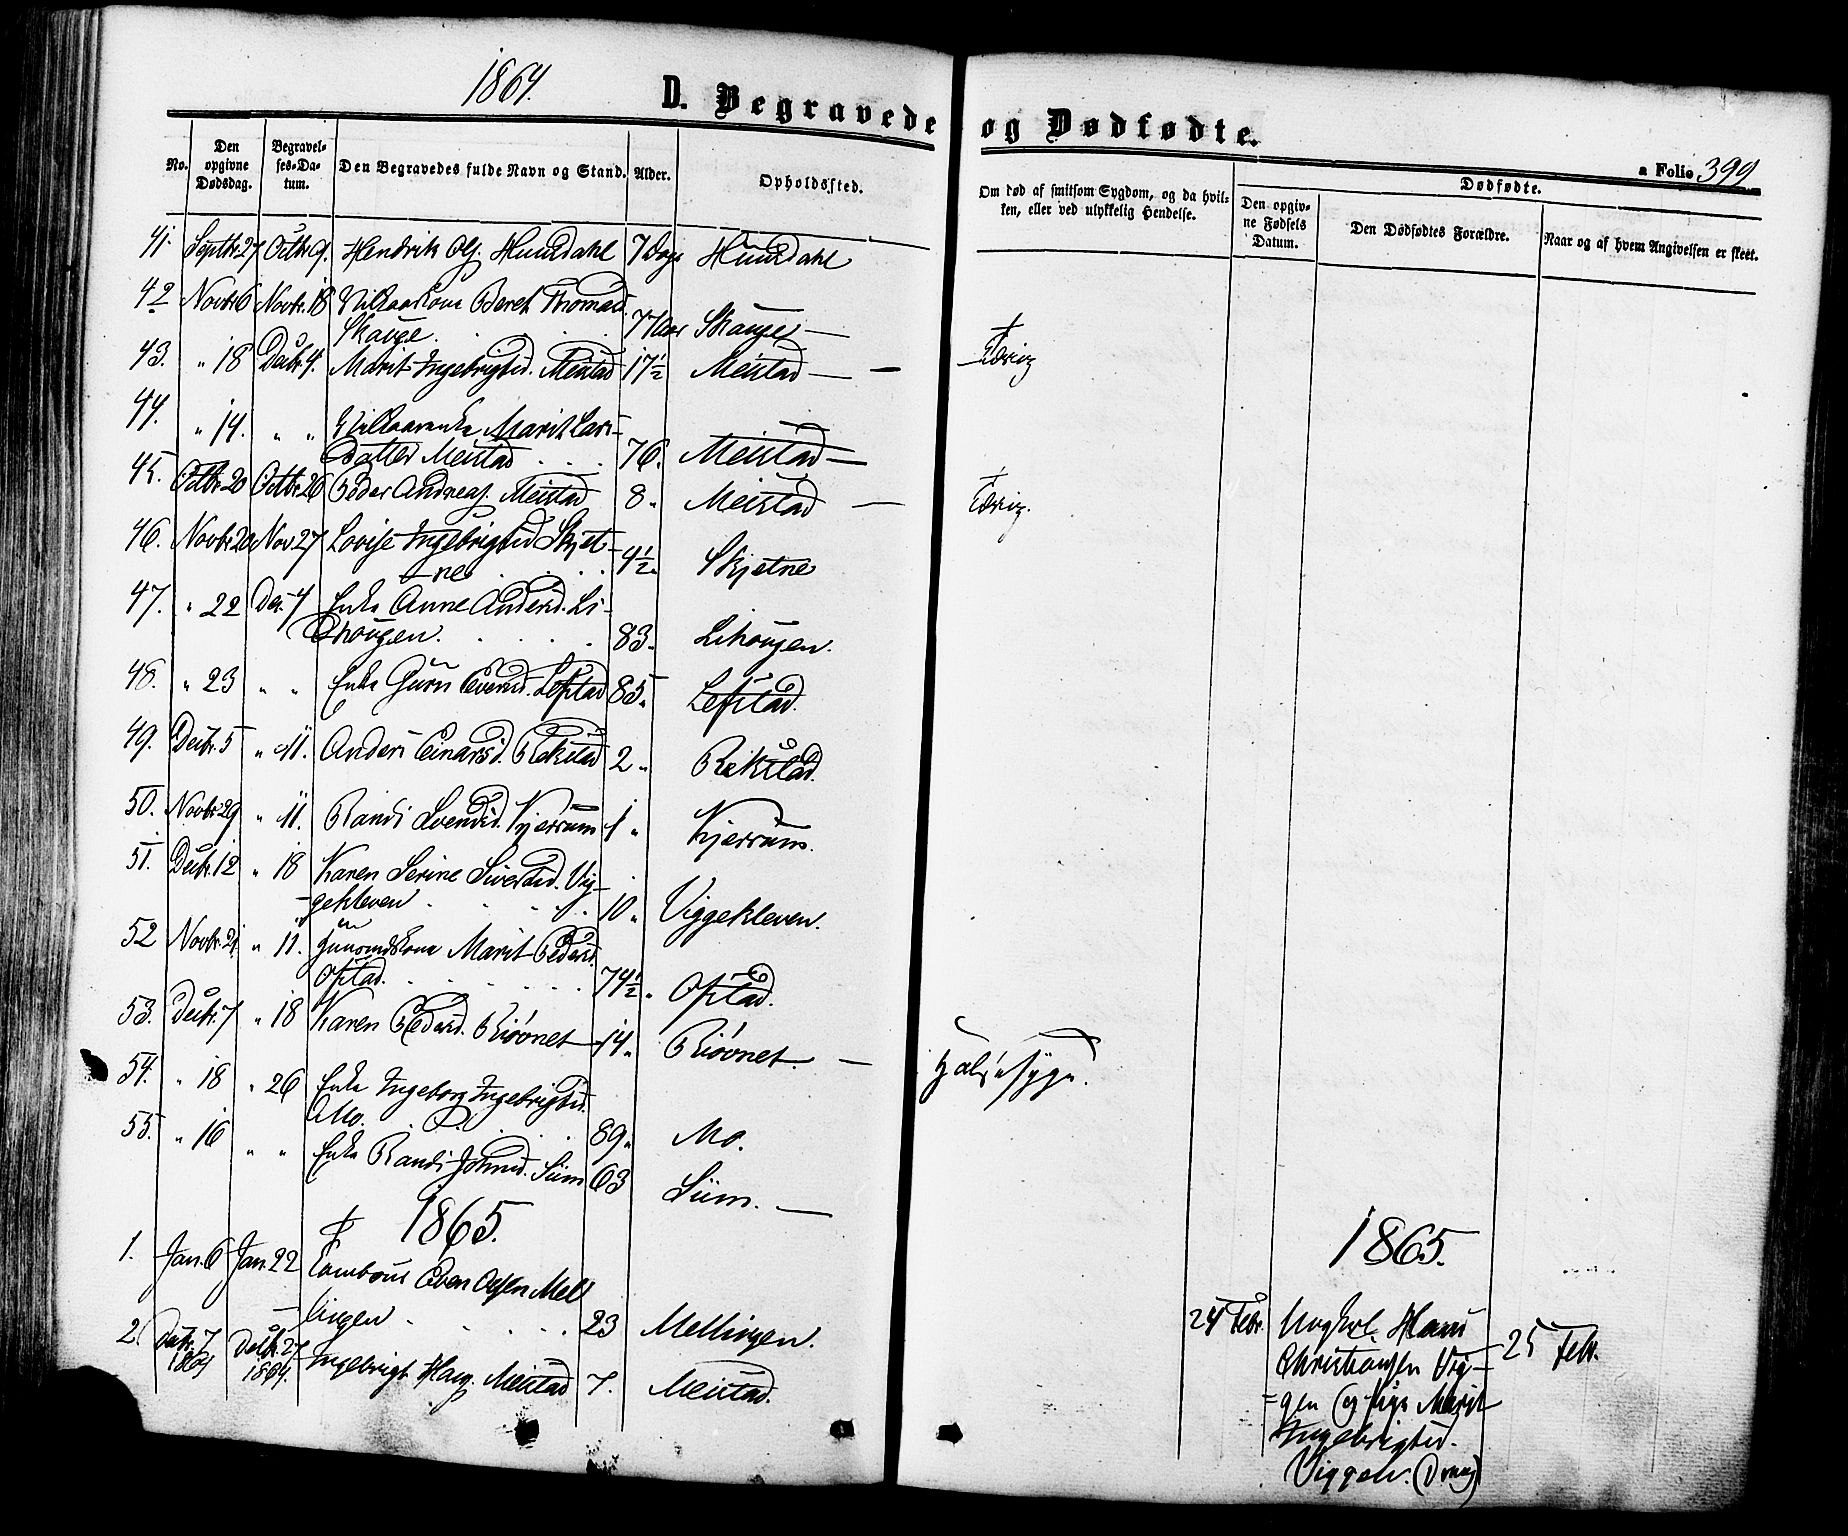 1864.
D. Begravede og Dødfødte.
a Folio 399
No.
Den opgivne Dødsdag.
Begravelses-Datum.
Den Begravedes fulde Navn og Stand.
Alder.
Opholdssted.
Om død af smitsom Sygdom, og da hvilken, eller ved ulykkelig Hendelse.
Dødfødte.
Den opgivne Fødsels Datum.
Den Dødfødtes Forældre.
Naar og af hvem Angivelsen er skeet.
41. Septbr 27 Octbr 9. Hendrik Ols. Hundahl 7 Dage Hundahl
42 Novbr 6 Novbr. 18 Vilkaarkone Beret Thomasd.
Skauge. 77 Aar Skauge —
43. " 18 Decbr 4. Marit Ingebrigtsd. Meistad 17½ Meistad —
44. " 14. " " Vilkaarenke Marit Lars-
datter Meistad 76. Meistad —
45. Octbr. 20 Octbr. 26 Peder Andreas. Meistad 8 " Meistad —
46. Novbr 20 Nov 27 Lovise Ingebrigtsd Skjet-
ne 4½ " Skjetne
47. " 22 Dec. 4 Enke Anne Andersd. Li-
hougen. 83. Lihougen.
48. " 23 " " Enke Guru Evensd. Lefstad 85 " Lefstad.
49. Decbr. 5 " 11. Anders Einarsd. Rekstad 2 " Rekstad.
50. Novbr 29 " 11. Randi Svendsd. Kjerrum 1 " Kjerrum.
51. Decbr. 12 " 18 Karen Serine Sivertsd. Vig-
gekleven 10 " Viggekleven.
52 Novbr. 21 " 11. Gaardmandskone Marit Pedersd.
Ofstad. 74½ " Ofstad.
53. Decbr. 7 " 18 Karen Pedersd. Riöönet 14 " Riöönet. —
Halssyge.
54. " 18 " 26 Enke Ingeborg Ingebrigtsd.
Mo. 89 " Mo.
55. " 16 " " Enke Randi Johnsd. Siim 63 Siim. —
1865.
1. Jan. 6 Jan. 22 Tambour Even Olsen Mel-
lingen 23 Mellingen.
2. Decbr. 7 1864 Decbr. 27 1864. Ingebrigt Hans. Meistad 7. Meistad.
1865.
24 Febr. Ungkarl Hans 25 Febr.
Christiansen Vig-
gen og Pige Marit
Ingebrigtsd.
Viggen.